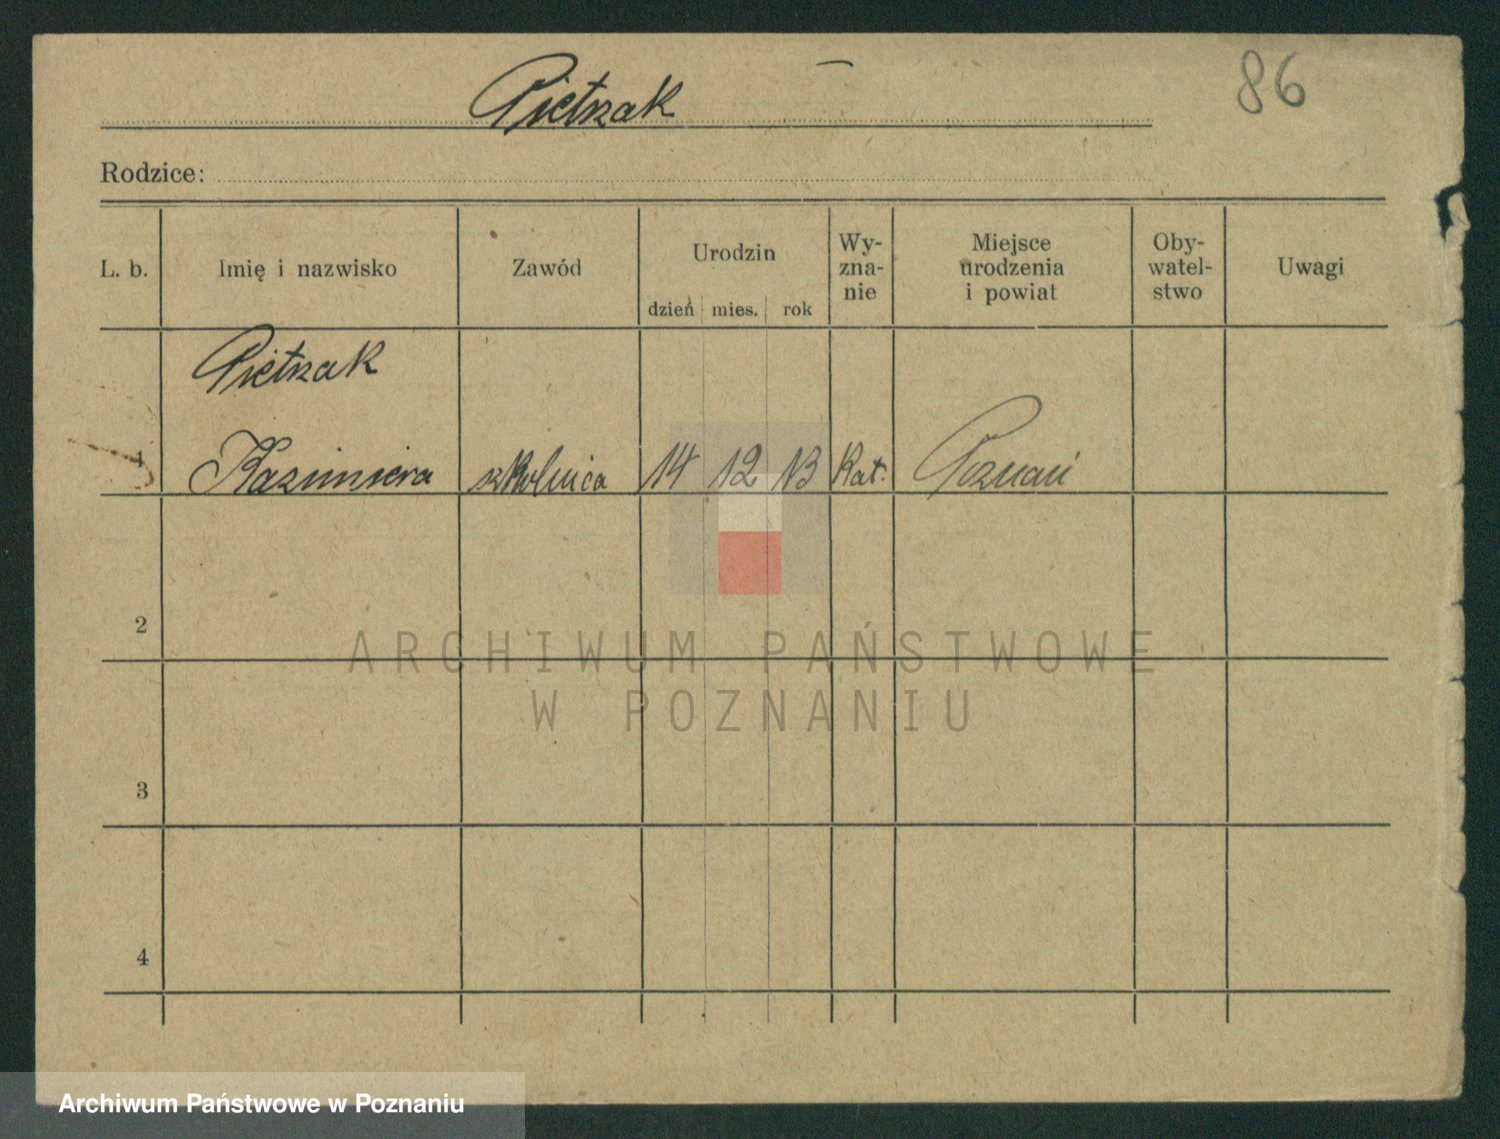 86
Pietrzak
Rodzice:
L. b.
Imię i nazwisko
Zawód
Urodzin
dzień mies. rok
Wy-
zna-
nie
Miejsce
urodzenia
i powiat
Oby-
watel-
stwo
Uwagi
Pietrzak
1 Kazimiera szkolnica 14 12 13 Kat. Poznań
2
3
4
ARCHIWUM PAŃSTWOWE
W POZNANIU
Archiwum Państwowe w Poznaniu